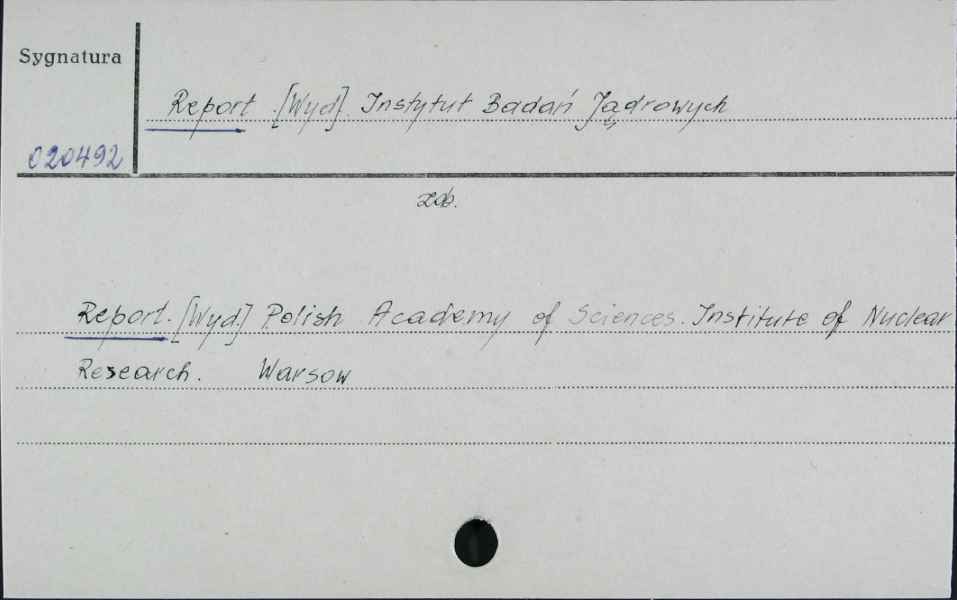 Sygnatura
Report [Wyd]. Instytut Badań Jądrowych
020492
zob.
Report. [Wyd.] Polish Academy of Sciences. Institute of Nuclear
Research. Warsow